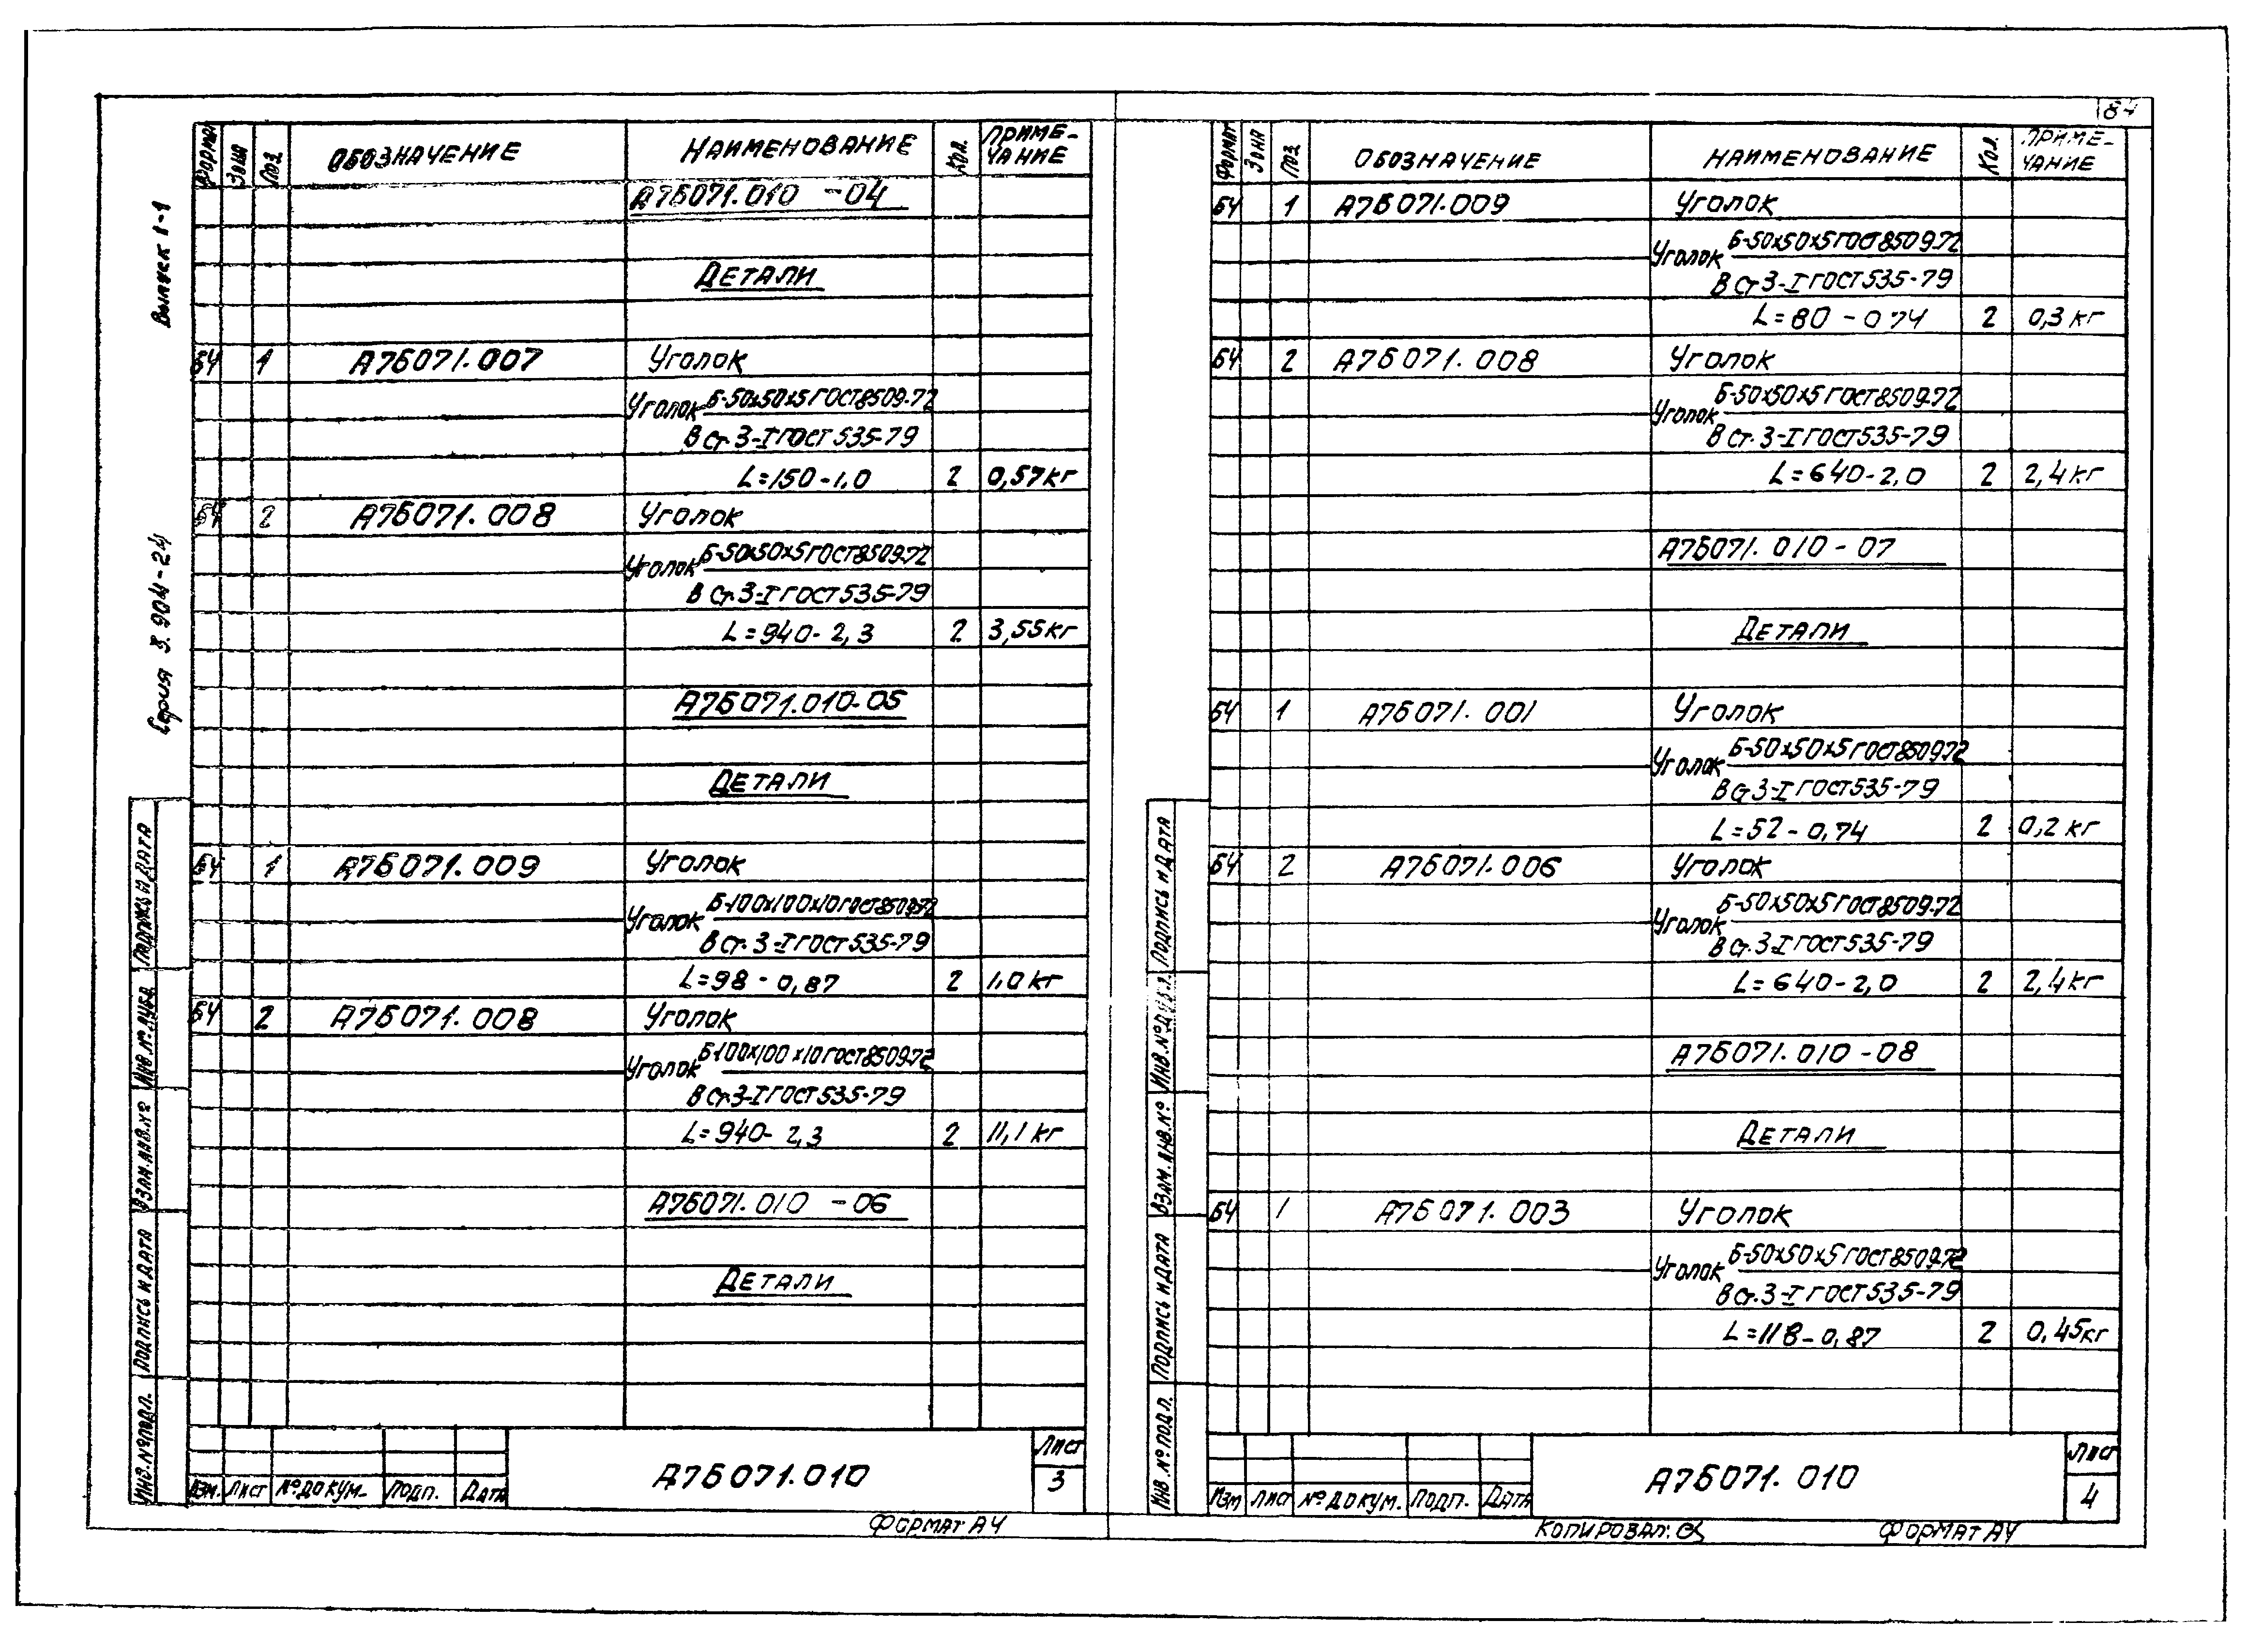 84
Выпуск 1-1
Серия 3.904-24
Формат Зона Поз. Обозначение Наименование Кол. Приме-
чание
А7Б071.010 -04
Детали
БЧ 1 А7Б071.007 Уголок
Уголок Б-50х50х5 ГОСТ 8509-72
В Ст.3-I ГОСТ 535-79
L=150-1,0 2 0,57кг
БЧ 2 А7Б071.008 Уголок
Уголок Б-50х50х5 ГОСТ 8509-72
В Ст.3-I ГОСТ 535-79
L=940-2,3 2 3,55кг
А7Б071.010-05
Детали
БЧ 1 А7Б071.009 Уголок
Уголок Б-100х100х10 ГОСТ 8509-72
В Ст.3-I ГОСТ 535-79
L=98-0,87 2 1,0кг
БЧ 2 А7Б071.008 Уголок
Уголок Б-100х100х10 ГОСТ 8509-72
В Ст.3-I ГОСТ 535-79
L=940-2,3 2 11,1кг
А7Б071.010 -06
Детали
Подпись и дата
Инв.№ дубл.
Взам.инв.№
Подпись и дата
Инв.№ подл.
Изм. Лист № докум. Подп. Дата
А7Б071.010
Лист
3
Формат А4
Формат Зона Поз. Обозначение Наименование Кол. Приме-
чание
БЧ 1 А7Б071.009 Уголок
Уголок Б-50х50х5 ГОСТ 8509-72
В Ст.3-I ГОСТ 535-79
L=80-0 74 2 0,3кг
БЧ 2 А7Б071.008 Уголок
Уголок Б-50х50х5 ГОСТ 8509-72
В Ст.3-I ГОСТ 535-79
L=640-2,0 2 2,4кг
А7Б071.010-07
Детали
БЧ 1 А7Б071.001 Уголок
Уголок Б-50х50х5 ГОСТ 8509-72
В Ст.3-I ГОСТ 535-79
L=52-0,74 2 0,2кг
БЧ 2 А7Б071.006 Уголок
Уголок Б-50х50х5 ГОСТ 8509-72
В Ст.3-I ГОСТ 535-79
L=640-2,0 2 2,4кг
А7Б071.010-08
Детали
БЧ 1 А7Б071.003 Уголок
Уголок Б-50х50х5 ГОСТ 8509-72
В Ст.3-I ГОСТ 535-79
L=118-0,87 2 0,45кг
Подпись и дата
Инв.№ дубл.
Взам.инв.№
Подпись и дата
Инв.№ подл.
Изм Лист № докум. Подп. Дата
А7Б071.010
Лист
4
Копировал:
Формат А4